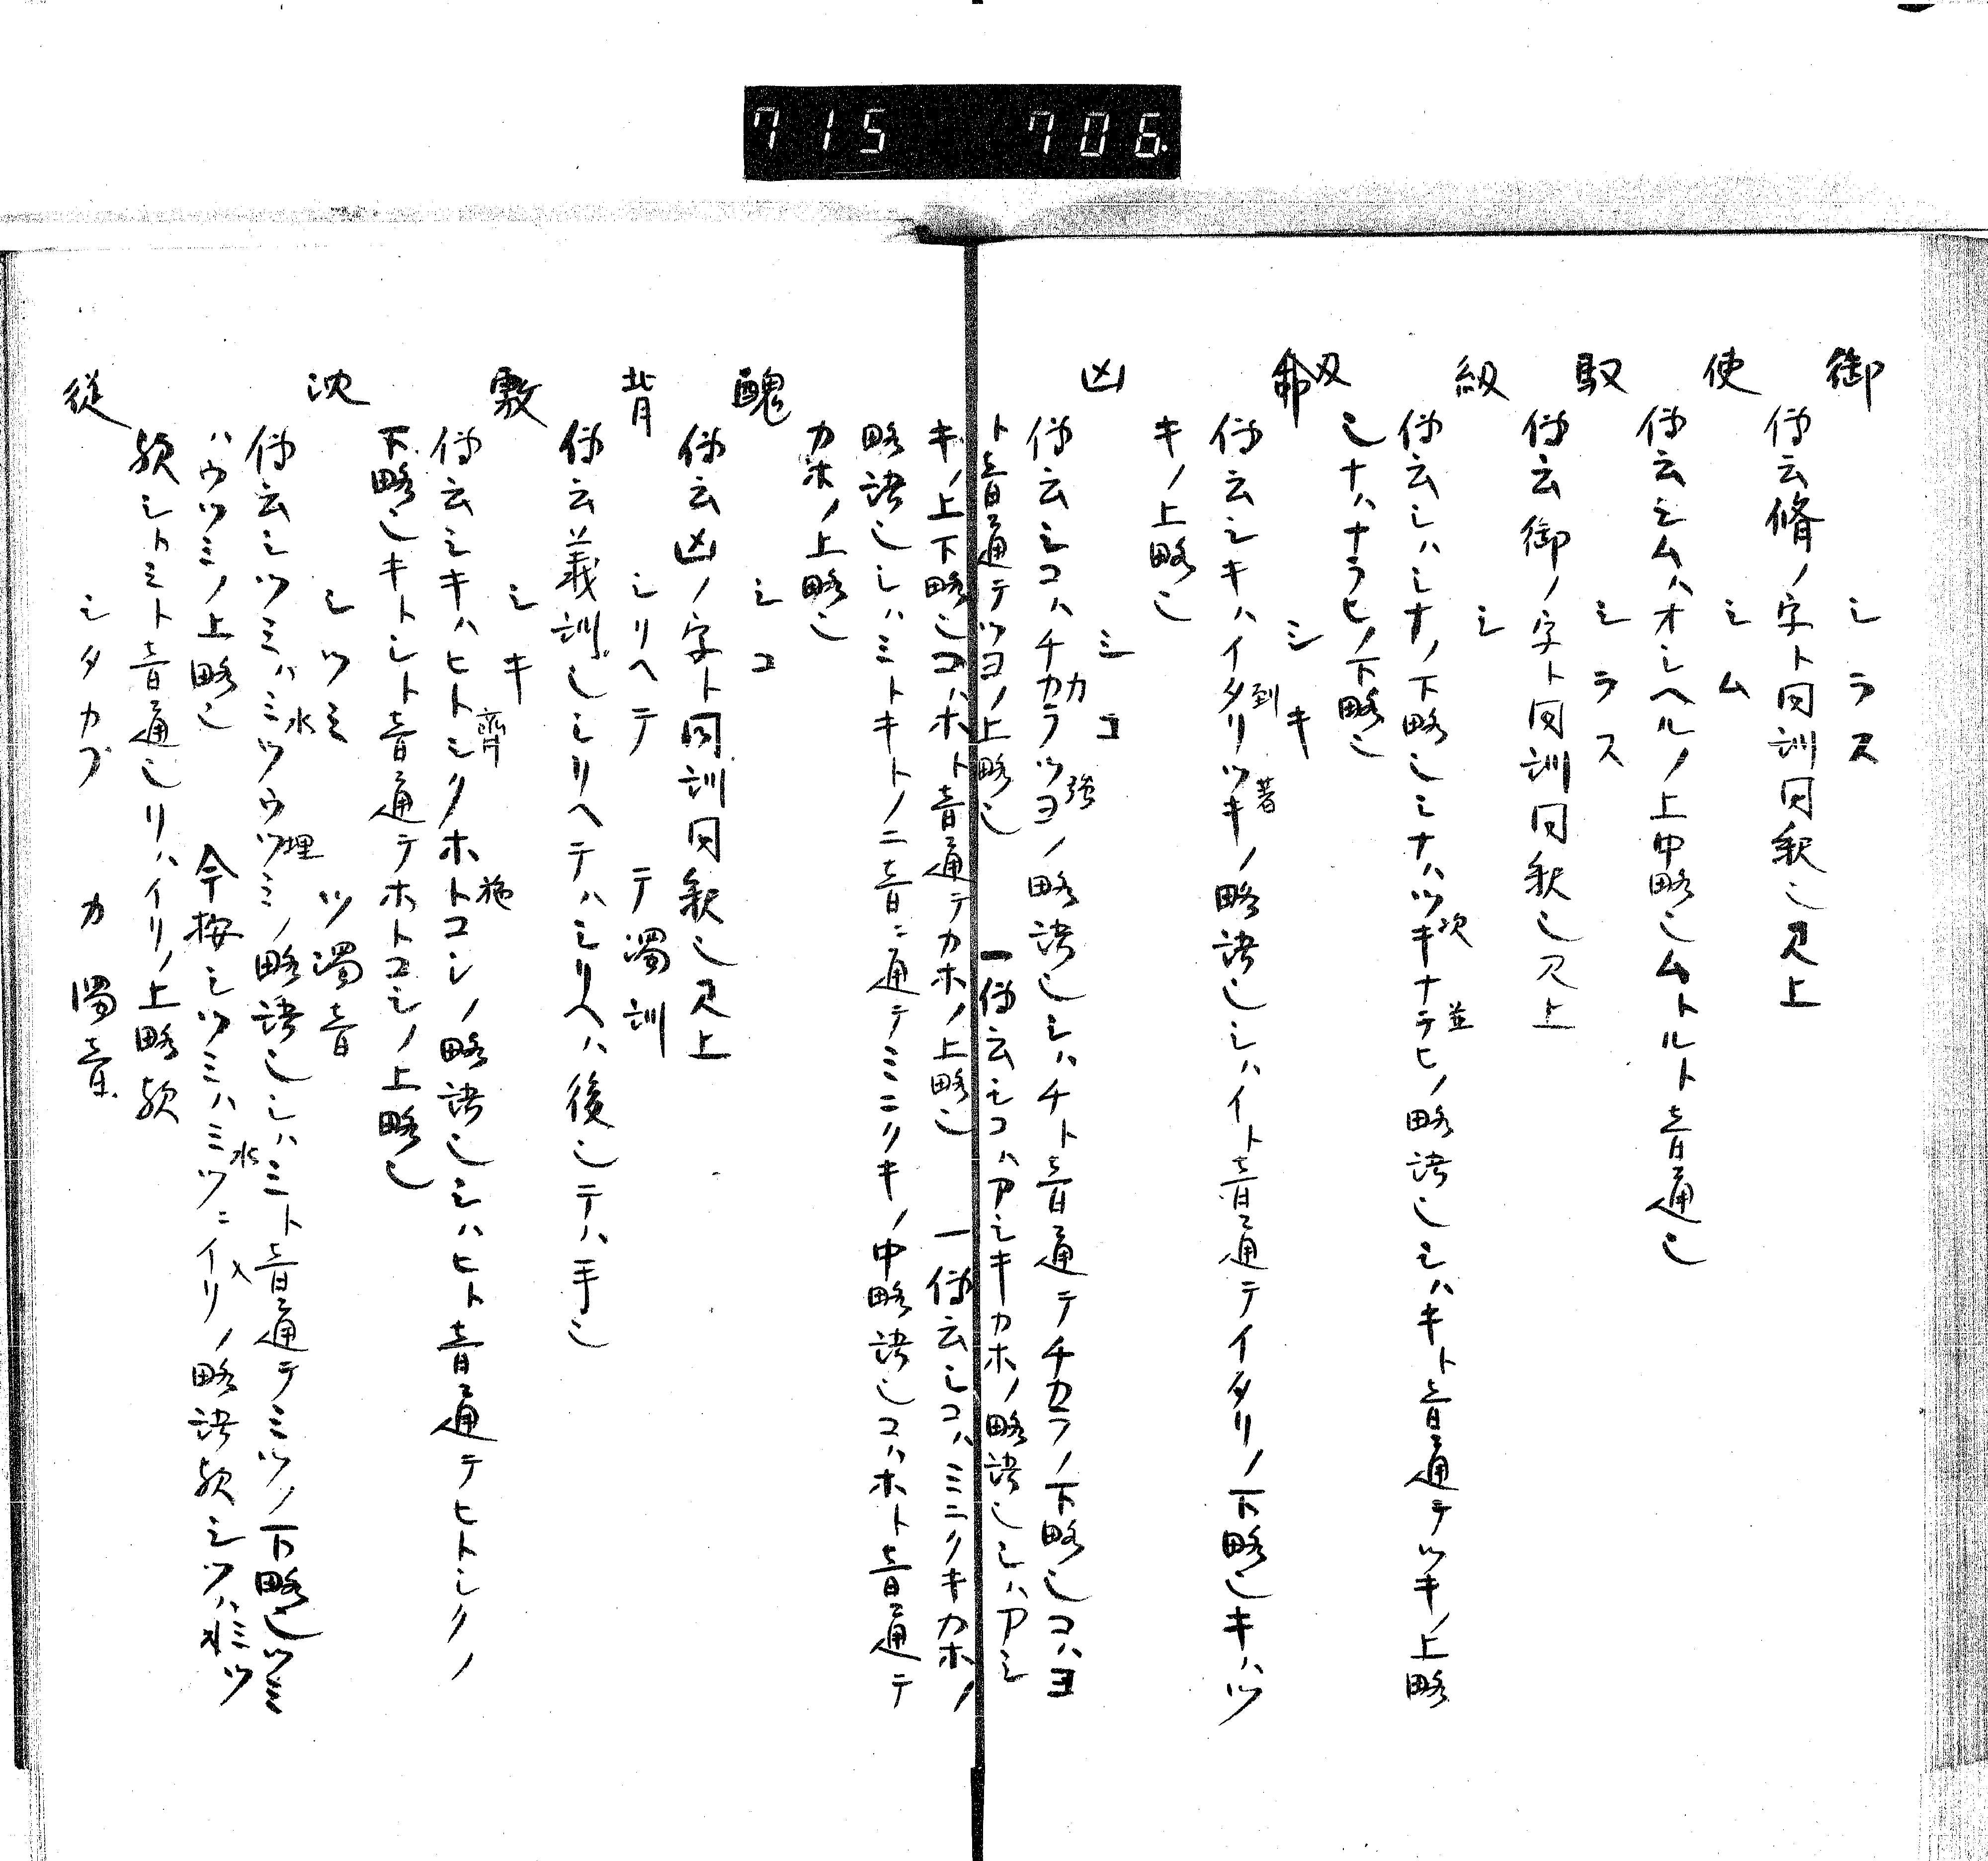 715 706.
御 シラス
伝云脩ノ字ト同訓同釈也見上
使 シム
伝云シムハオシヘルノ上中略也ムトルト音通也
馭 シラス
伝云御ノ字ト同訓同釈也見上
級 シ
伝云シハシナノ下略也シナハツキ次ナラヒ並ノ略語也シハキト音通テツキノ上略
也ナハナラヒノ下略也
シキ
伝云シキハイタリ到ツキ著ノ略語也シハイト音通テイタリノ下略也キハツ
キノ上略也
凶 シコ
伝云シコハチカラ力ツヨ強ノ略語也シハチト音通テチカラノ下略也コハヨ
ト音通テツヨノ上略也 一伝云シコハアシキカホノ略語也シハアシ
キノ上下略也コハホト音通テカホノ上略也 一伝云シコハミニクキカホノ
略語也シハミトキトノ二音ニ通テミニクキノ中略語也コハホト音通テ
カホノ上略也
醜 シコ
伝云凶ノ字ト同訓同釈也見上
背 シリヘテ テ濁訓
伝云義訓也シリヘテハシリヘハ後也テハ手也
敷 シキ
伝云シキハヒトシク齊ホトコシ施ノ略語也シハヒト音通テヒトシクノ
下略也キトシト音通テホトコシノ上略也
沈 シツミ ツ濁音
伝云シツミハミツ水ウツミ埋ノ略語也シハミト音通テミツノ下略也ツミ
ハウツミノ上略也 今按シツミハミツ水ニイリ入ノ略語歟シツハミツ
歟シトミト音通也リハイリノ上略歟
従 シタカフ カ濁音